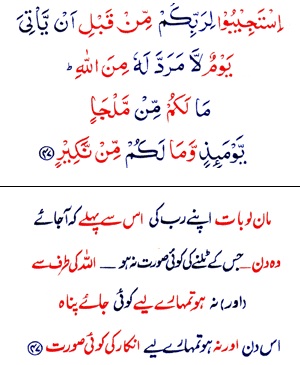 اِسْتَجِيْبُوْا لِرَبِّكُمْ مِّنْ قَبْلِ اَنْ يَّاْتِىَ
يَوْمٌ لَّا مَرَدَّ لَهٗ مِنَ اللّٰهِ ؕ
مَا لَكُمْ مِّنْ مَّلْجَاٍ
يَّوْمَٮِٕذٍ وَّمَا لَكُمْ مِّنْ نَّكِيْرٍ ﴿۴۷﴾
مان لو بات اپنے رب کی اس سے پہلے کہ آجائے
وہ دن جس کے ٹلنے کی کوئی صورت نہ ہو ــــ اللہ کی طرف سے
(اور) نہ ہو تمہارے لیے کوئی جائے پناہ
اس دن اور نہ ہو تمہارے لیے انکار کی کوئی صورت ﴿۴۷﴾